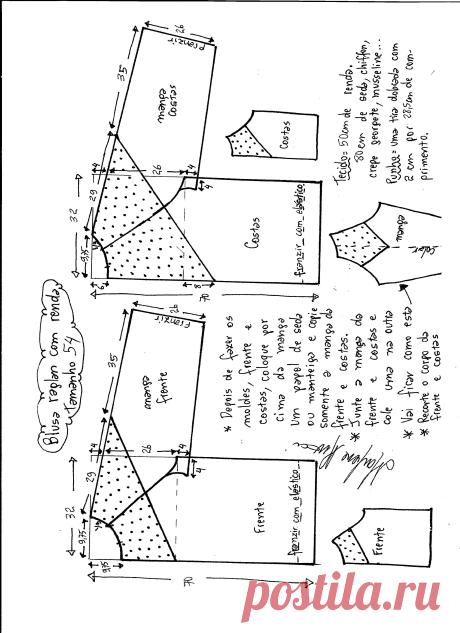 Blusa raglan com renda
Tamanho 54
26
Franzir
35
manga
costas
4
26
4
4
29
32
9,75
6
Costas
franzir com elástico
8
70
Costas
Tecido= 50cm de renda.
80 cm de seda, chiffon,
crepe georgete, musseline...
Punho= uma tira dobrada com
2 cm por
primento.
manga
26
Franzir
35
manga
frente
4
26
4
4
29
32
9,75
9,75
Frente
franzir com elástico
70
Frente
* Depois de fazer os
moldes, frente e
costas, coloque por
cima da manga
um papel de seda
ou manteiga e copie
somente a manga da
frente e costas.
* Junte a manga da
frente e costas e
cole uma na outra
* Vai ficar como esta
* Recorte o corpo da
frente e costas
postila.ru